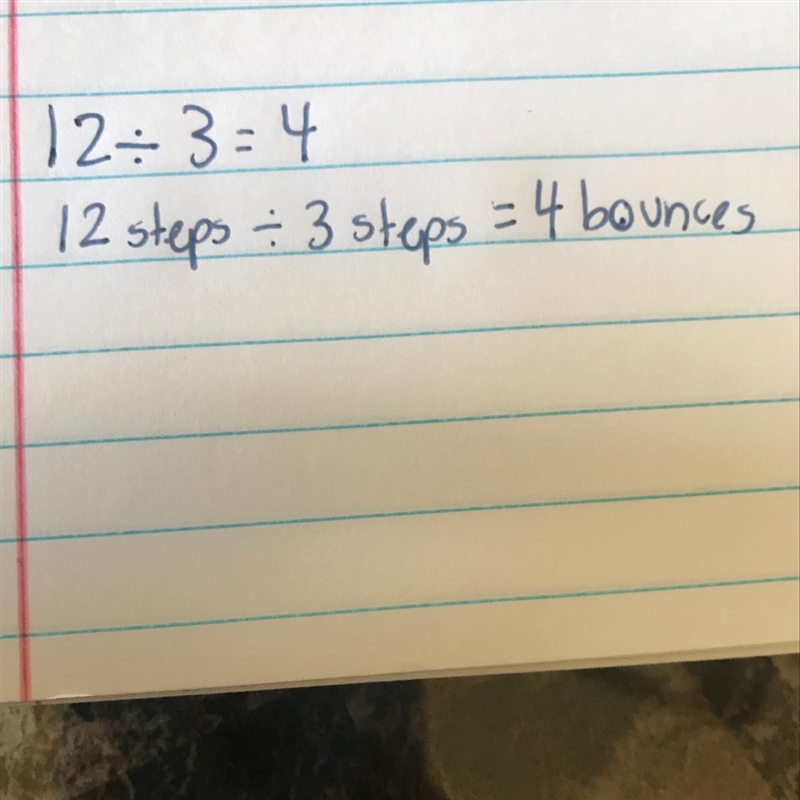 12 ÷ 3 = 4
12 steps ÷ 3 steps = 4 bounces